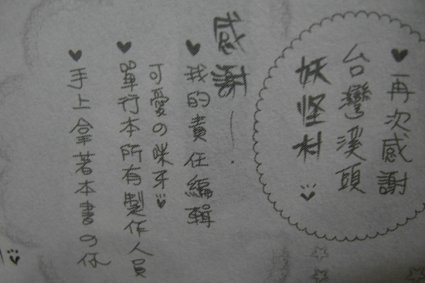 ♥再次感謝
台灣溪頭
妖怪村
感謝……
♥我的責任編輯
可愛の咪牙
♥單行本所有製作人員
♥手上拿著本書の你